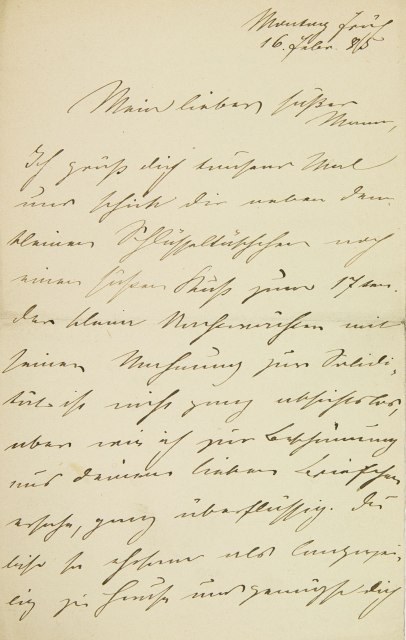 Montag Früh
16. Febr. 85
Mein lieber, süßer
Mann,
Ich grüß dich tausend Mal
und schick dir neben dem
kleinen Schlüsseltäschchen noch
einen süßen Kuß zum 17ten.
Der kleine mit
seiner Mahnung zur Solidi-
tät ist nicht ganz absichtslos,
aber wie ich zur Beschämung
aus deinem lieben Briefchen
ersehe, ganz überflüssig. Du
so als langwei-
lig zu Hause und dich